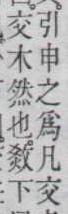 引申之爲凡交
交木然也。敎下